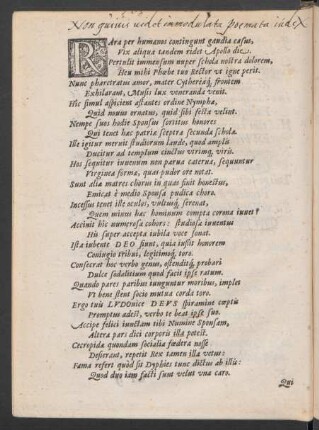 Non quivis videt immodulata poëmata iudex
RAra per humanos contingunt gaudia casus,
Vix aliqua tandem ridet Apollo die.
Pertulit immensum nuper schola nostra dolorem,
Heu mihi Phœbe tuus Rector ut igne perit.
Nunc pharetratus amor, mater Cythereaq́, frontem
Exhilarant, Musis lux veneranda venit.
Hic simul aspiciens astantes ordine Nympha,
Quid mune ornatus, quid sibi festa velint.
Nempe suos hodie Sponsus sortitur honores
Qui tenet hac patriæ sceptra secunda schola.
Ille igitur meruit studiorum laude, quod amplis
Ducitur ad templum cinctus utrimq, viris.
Hos sequitur iuvenum non parva caterva, sequuntur
Virgineæ formæ, quas pudor ore notat.
Sunt alia matres chorus in quas fuit honestus,
Emicat è medio Sponsa pudica choro.
Incessus tenet ille oculos, vultusq́, serenat,
Quem minus hac hominum compta corona iuvet?
Accinit his numerosa cohors: studiosa iuventus
His super accepta iubila voce sonat.
Ista iubente DEO fiunt, quia iussit honorem
Coniugio tribui, legitimoq́, toro.
Consecrat hoc verbo genus, ostenditq́, probari
Dulce sodalitium quod facit ipse ratum.
Quando pares paribus iunguntur moribus, implet
Ut bene stent socio mutua corda toro.
Ergo tuis LUDOvice DEUS spiramine captis
Promptus adest, verbo te beat ipse suo.
Accipe felici iunctam tibi Numine Sponsam,
Altera pars dici corporis illa potest.
Cecropida quondam socialia fœdera nosse
Deserant, repetit Rex tamen illa vetus:
Fama refert quod sit Dyphies tunc dictus ab illis:
Quod duo iam facti sunt velut una caro.
Qui